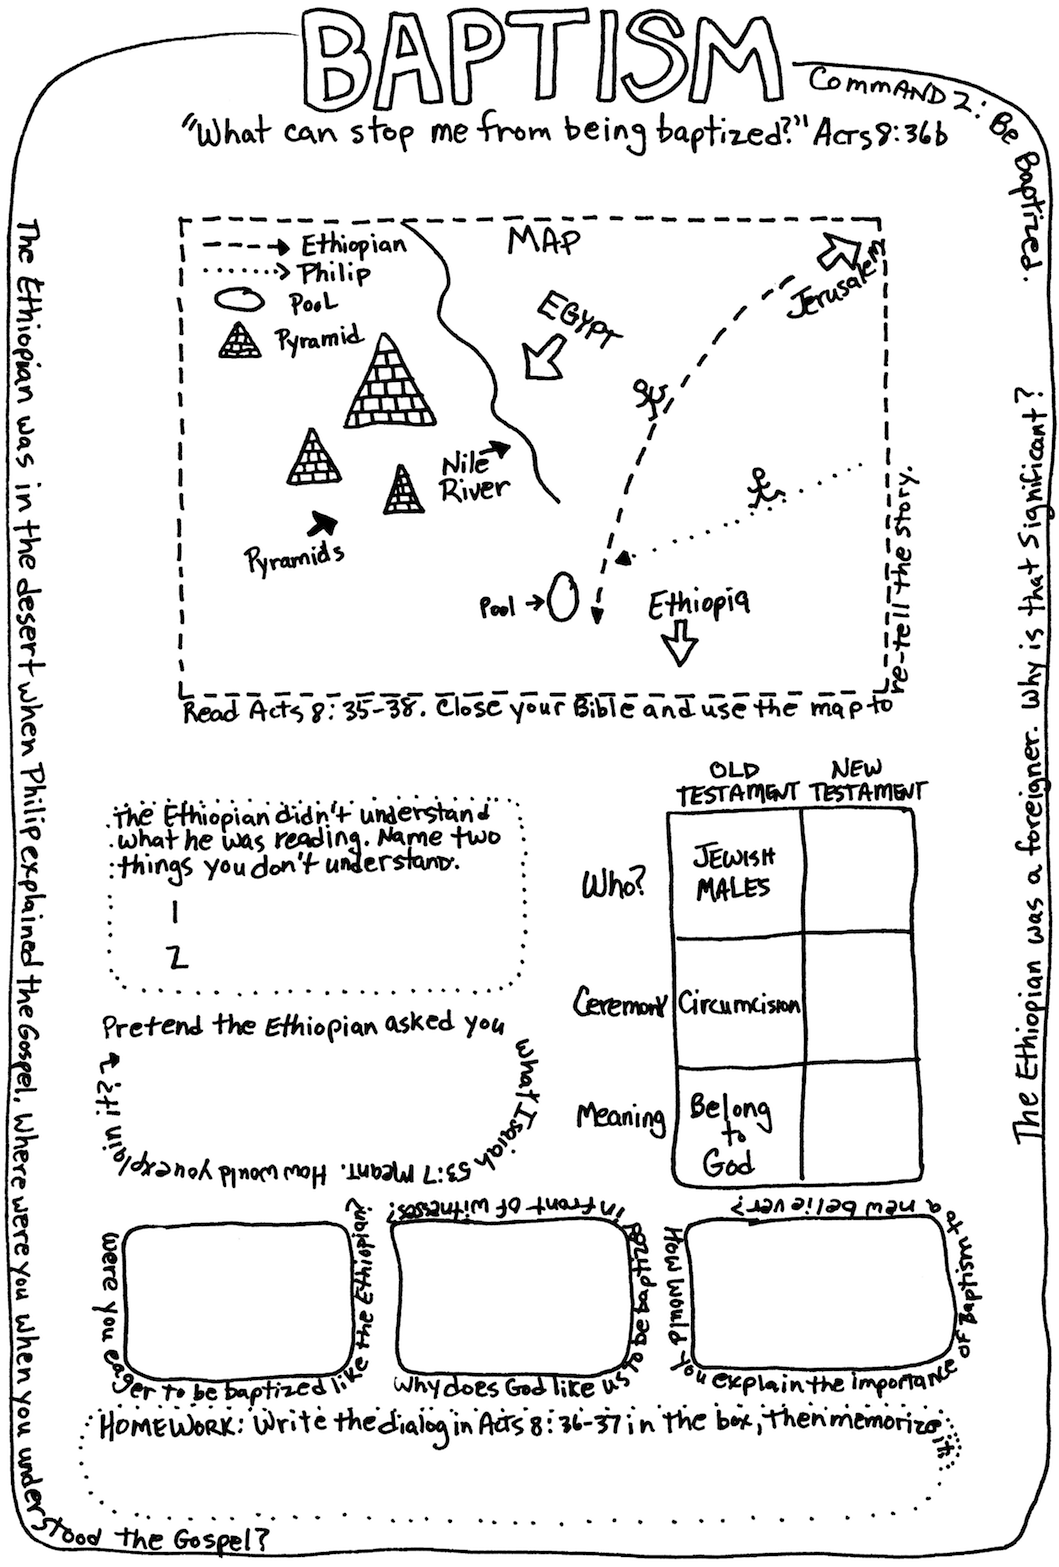 BAPTISM
Command 2: Be Baptized.
"What can stop me from being baptized?" Acts 8:36b
MAP
Ethiopian
Philip
Pool
Pyramid
EGYPT
Jerusalem
Nile
River
Pyramids
Pool
Ethiopia
Read Acts 8:35-38. Close your Bible and use the map to
re-tell the story.
The Ethiopian was in the desert when Philip explained the Gospel, Where were you when you understood the Gospel?
The Ethiopian was a foreigner. Why is that Significant?
The Ethiopian didn't understand
what he was reading. Name two
things you don't understand.
1
2
OLD
TESTAMENT
NEW
TESTAMENT
Who?
JEWISH
MALES
Ceremony
Circumcision
Meaning
Belong
to
God
Pretend the Ethiopian asked you
what Isaiah
53:7 Meant. How would you explain it?
were you eager to be baptized like the Ethiopian?
Why does God like us to be baptized in front of witnesses?
How would you explain the importance of Baptism to a new believer?
HOMEWORK: Write the dialog in Acts 8:36-37 in the box, then memorize it.